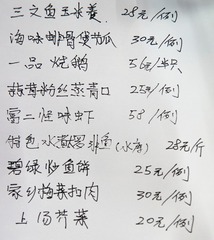 三文鱼玉米羹 28元/例
海味排骨煲节瓜 30元/例
一品烧鹅 56元/半只
菇茸粉丝蒸青口 25元/例
富二怪味虾 58/例
特色水煮罗非鱼(水库) 28元/斤
碧绿炒鱼饼 25元/例
家乡梅菜扣肉 30元/例
上汤芥菜 20元/例